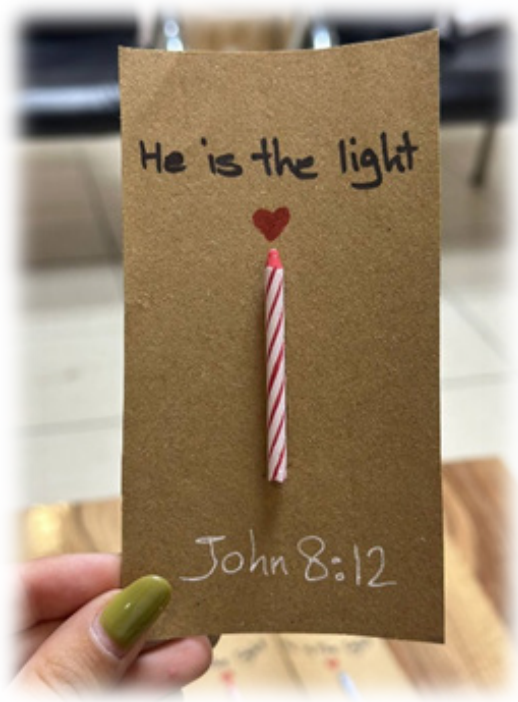 He is the light
John 8:12